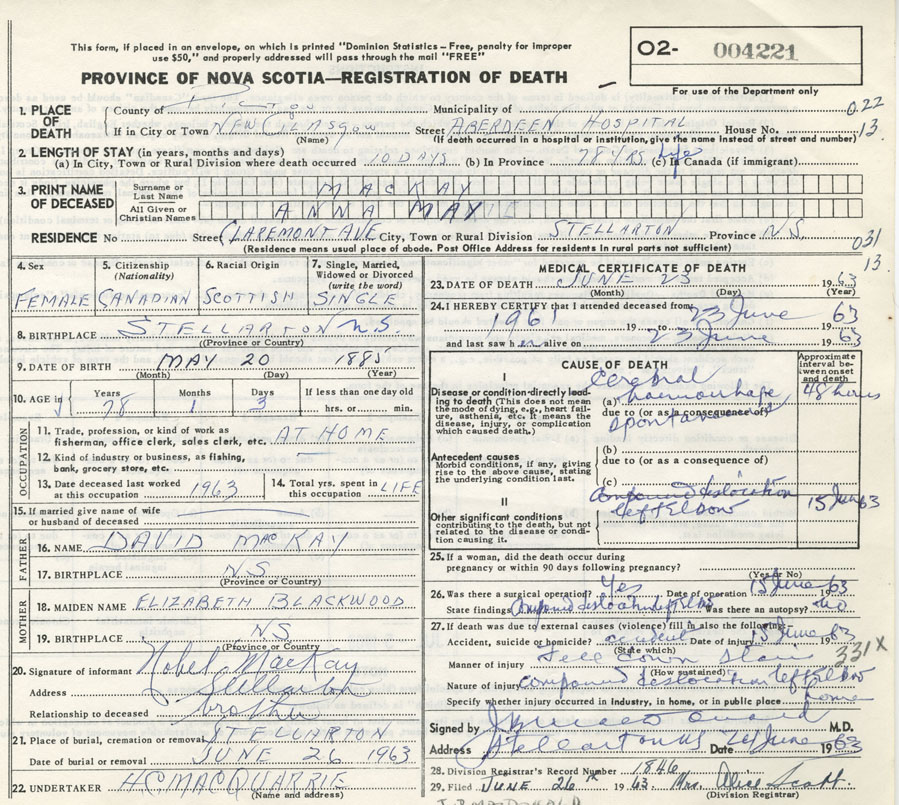 This form, if placed in an envelope, on which is printed "Dominion Statistics – Free, penalty for improper
use $50," and properly addressed will pass through the mail "FREE"
O2- 004221
For use of the Department only
PROVINCE OF NOVA SCOTIA—REGISTRATION OF DEATH
1. PLACE OF DEATH
County of Pictou Municipality of
022
If in City or Town NEW GLASGOW Street ABERDEEN HOSPITAL House No. 13.
(Name) (If death occurred in a hospital or institution, give the name instead of street and number)
2. LENGTH OF STAY (in years, months and days)
(a) In City, Town or Rural Division where death occurred 10 DAYS (b) In Province 78 YRS. (c) In Canada (if immigrant) Life
3. PRINT NAME OF DECEASED
Surname or Last Name MACKAY
All Given or Christian Names ANNA MAY
RESIDENCE No Street CLAREMONT AVE City, Town or Rural Division STELLARTON Province N.S.
(Residence means usual place of abode. Post Office Address for residents in rural parts not sufficient)
031
13
4. Sex FEMALE
5. Citizenship (Nationality) CANADIAN
6. Racial Origin SCOTTISH
7. Single, Married, Widowed or Divorced (write the word) SINGLE
8. BIRTHPLACE STELLARTON N.S.
(Province or Country)
9. DATE OF BIRTH MAY 20 1885
(Month) (Day) (Year)
10. AGE in Years 78 Months 1 Days 3 If less than one day old hrs. or min.
OCCUPATION
11. Trade, profession, or kind of work as fisherman, office clerk, sales clerk, etc. AT HOME
12. Kind of industry or business, as fishing, bank, grocery store, etc.
13. Date deceased last worked at this occupation 1963
14. Total yrs. spent in this occupation LIFE
15. If married give name of wife or husband of deceased
FATHER
16. NAME DAVID MacKAY
17. BIRTHPLACE N.S
(Province or Country)
MOTHER
18. MAIDEN NAME ELIZABETH BLACKWOOD
19. BIRTHPLACE N.S
(Province or Country)
20. Signature of informant MacKay
Address Stellarton
Relationship to deceased brother
21. Place of burial, cremation or removal STELLARTON
Date of burial or removal JUNE 26 1963
22. UNDERTAKER H.C. MACQUARRIE
(Name and address)
MEDICAL CERTIFICATE OF DEATH
23. DATE OF DEATH JUNE 23 1963
(Month) (Day) (Year)
24. I HEREBY CERTIFY that I attended deceased from
1961 19 to 23 June 1963
and last saw her alive on 23 June 1963
CAUSE OF DEATH
Approximate interval between onset and death
I
Disease or condition directly leading to death (This does not mean the mode of dying, e.g., heart failure, asthenia, etc. It means the disease, injury, or complication which caused death.)
(a) Cerebral haemorrhage 48 hours
due to (or as a consequence of)
spontaneous
Antecedent causes
Morbid conditions, if any, giving rise to the above cause, stating the underlying condition last.
(b)
due to (or as a consequence of)
(c)
II
Other significant conditions contributing to the death, but not related to the disease or condition causing it.
compound dislocation left Elbow 15 June 63
25. If a woman, did the death occur during pregnancy or within 90 days following pregnancy?
(Yes or No)
26. Was there a surgical operation? Yes Date of operation 15 June 1963
State findings Compound dislocation left Elbow Was there an autopsy? no
27. If death was due to external causes (violence) fill in also the following:
Accident, suicide or homicide? accident Date of injury 15 June 1963
(State which)
331X
Manner of injury Fell down stairs
(How sustained)
Nature of injury compound dislocation left Elbow
Specify whether injury occurred in industry, in home, or in public place home
Signed by M.D.
Address Stellarton NS Date June 1963
28. Division Registrar's Record Number 1846
29. Filed JUNE 26th 1963. Mrs. Alice Scott.
(Division Registrar)